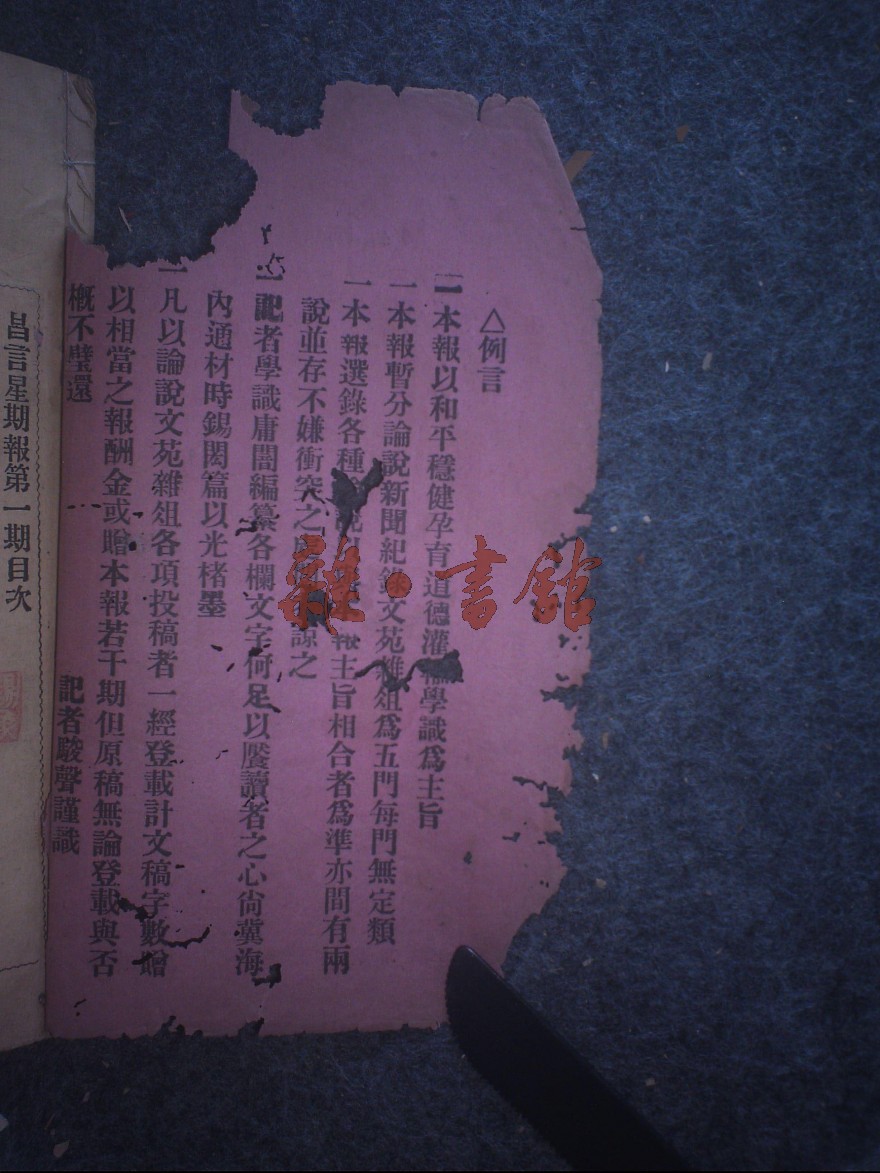 △例言
一本報以和平穩健孕育道德灌輸學識爲主旨
一本報暫分論說新聞紀錄文苑雜俎爲五門每門無定類
一本報選錄各種報主旨相合者爲準亦間有兩
說並存不嫌衝突之諒之
一記者學識庸闇編纂各欄文字何足以饜讀者之心尙冀海
內通材時錫閎篇以光楮墨
一凡以論說文苑雜俎各項投稿者一經登載計文稿字數贈
以相當之報酬金或贈本報若干期但原稿無論登載與否
概不璧還
記者駿聲謹識
昌言星期報第一期目次
雜·書館